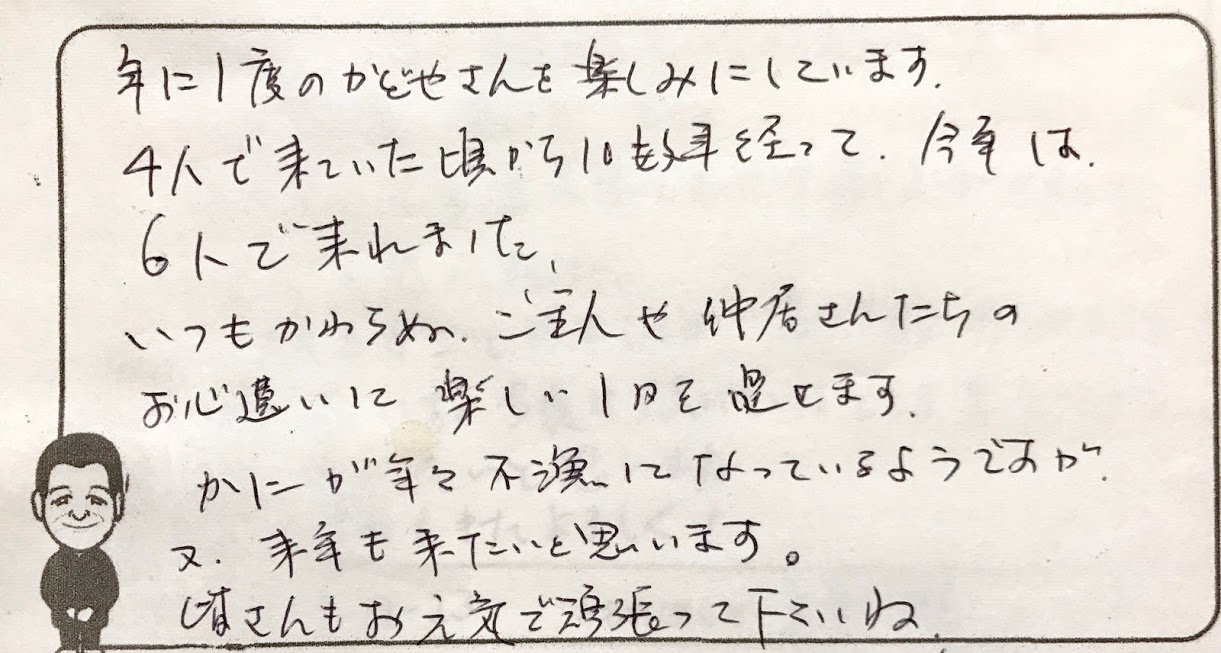 年に1度のかどやさんを楽しみにしています.
4人で来ていた頃から10数年を経って.今年は.
6人で来れました、
いつもかわらぬ.ご主人や仲居さんたちの
お心遣いに楽しい1日を過せます.
かにが年々不漁になっているようですが.
又.来年も来たいと思います。
皆さんもお元気で頑張って下さいね.